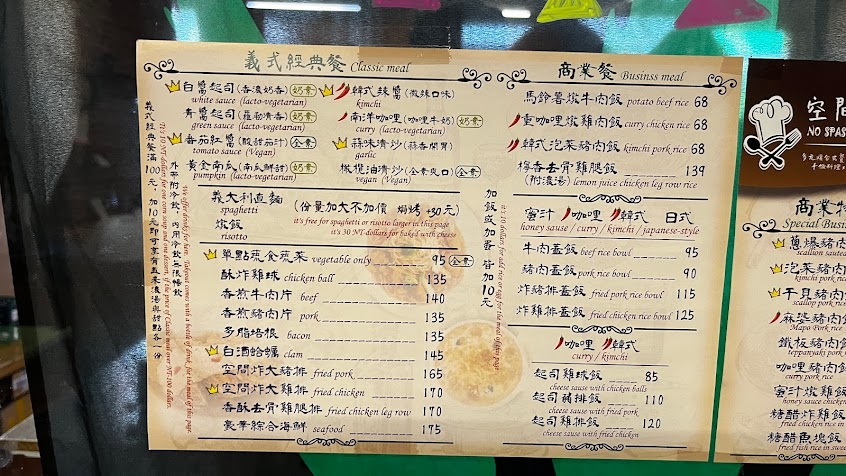 義式經典餐 Classic meal
白醬起司(香濃奶香) 奶素
white sauce (lacto-vegetarian)
青醬起司(羅勒清香) 奶素
green sauce (lacto-vegetarian)
番茄紅醬(酸甜茄汁) 全素
tomato sauce (Vegan)
黃金南瓜(南瓜鮮甜) 奶素
pumpkin (lacto-vegetarian)
韓式辣醬(微辣口味)
kimchi
南洋咖哩(咖哩牛奶) 奶素
curry (lacto-vegetarian)
蒜味清炒(蒜香開胃)
garlic
橄欖油清炒(全素爽口) 全素
(vegan)
義大利直麵
spaghetti
燉飯
risotto
(份量加大不加價 焗烤+30元)
it's free for spaghetti or risotto larger in this page
it's 30 NT-dollars for baked with cheese
單點蔬食蔬菜 vegetable only 95 全素
酥炸雞球 chicken ball 135
香煎牛肉片 beef 140
香煎豬肉片 pork 135
多脂培根 bacon 135
白酒蛤蠣 clam 145
空間炸大豬排 fried pork 165
空間炸大雞排 fried chicken 170
香酥去骨雞腿排 fried chicken leg row 170
豪華綜合海鮮 seafood 175
義式經典餐滿100元，加10元即可享有直素濃湯與甜點各一份
外帶附冷飲，內用冷飲無限暢飲
We offer drinks for here. Takeout comes with a bottle of drink, for the meal of this page.
商業餐 Businss meal
馬鈴薯燉牛肉飯 potato beef rice 68
重咖哩燉雞肉飯 curry chicken rice 68
韓式泡菜豬肉飯 kimchi pork rice 68
檸香去骨雞腿飯 139
(附淡湯) lemon juice chicken leg row rice
蜜汁 咖哩 韓式 日式
honey sause / curry / kimchi / japanese-style
牛肉蓋飯 beef rice bowl 95
豬肉蓋飯 pork rice bowl 90
炸豬排蓋飯 fried pork rice bowl 115
炸雞排蓋飯 fried chicken rice bowl 125
咖哩 韓式
curry / kimchi
起司雞球飯 85
cheese sause with chicken balls
起司豬排飯 110
cheese sause with fried pork
起司雞排飯 120
cheese sause with fried chicken
加飯或加蛋 皆加10元
空間
NO SPAS
商業特
Special Busin
蔥爆豬肉
scallion saute
泡菜豬肉
kimchi pork r
干貝豬肉
scallop pork rice
麻婆豬肉飯
Mapo Pork ric
鐵板豬肉
teppanyaki pork
咖哩豬肉飯
curry pork rice
蜜汁燉雞
honey sause chicken
糖醋炸雞
fried chicken in sweet
糖醋魚塊飯
fried fish rice in sweet